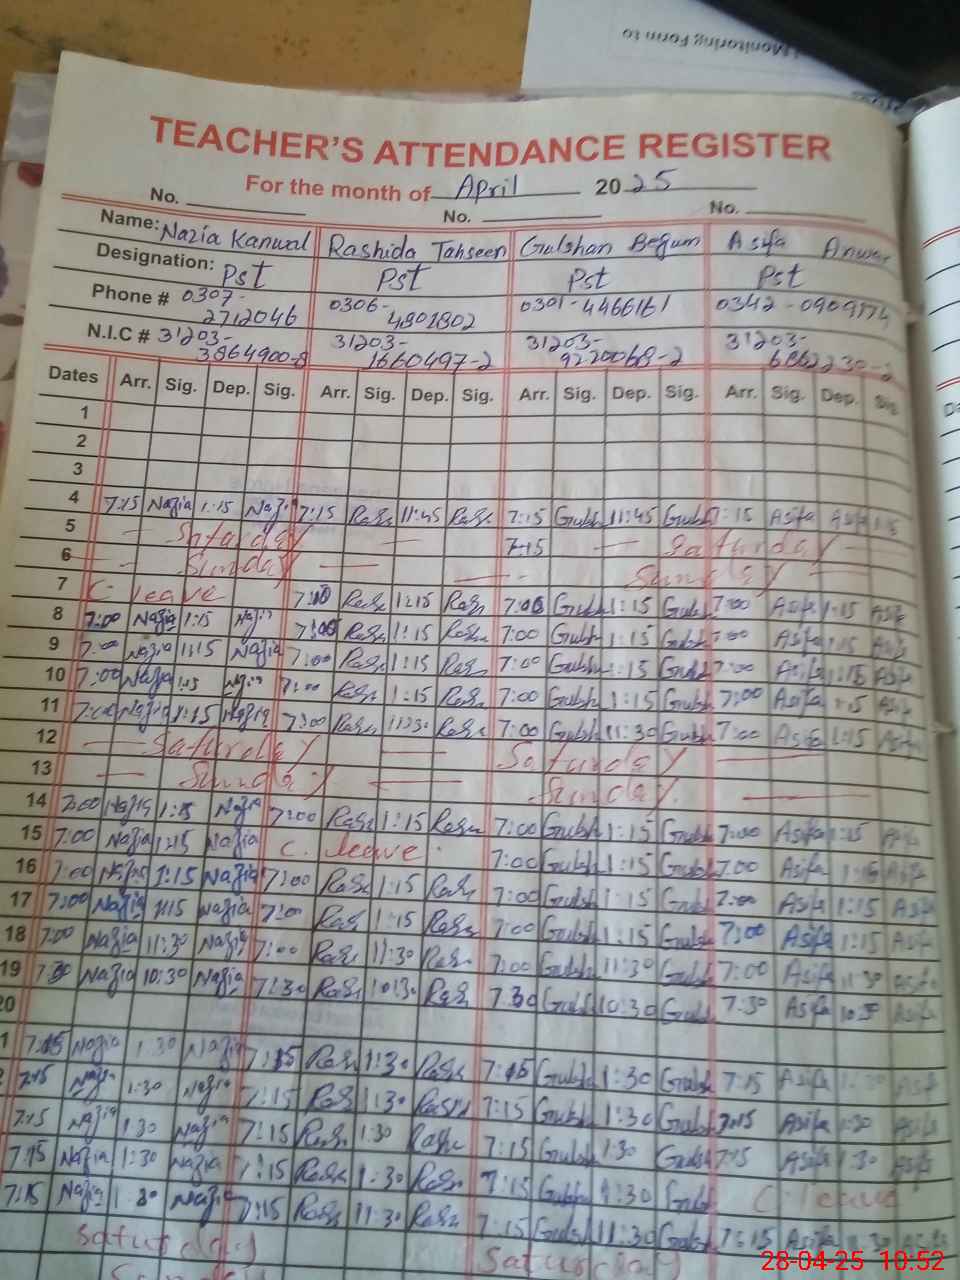 Monitoring Form to
TEACHER'S ATTENDANCE REGISTER
For the month of April 2025
No. No. No.
Name: Nazia Kanwal Rashida Tahseen Gulshan Begum Asifa Anwar
Designation: Pst Pst Pst Pst
Phone # 0307- 0306- 0301-4466161 0342-
2712046 4801802
N.I.C # 31203- 31203- 31203- 31203-
3864900-8 1660497-2 9220068-2
Dates Arr. Sig. Dep. Sig. Arr. Sig. Dep. Sig. Arr. Sig. Dep. Sig. Arr. Sig. Dep. Sig.
1
2
3
4 7:15 Nazia 1:15 Nazia 7:15 11:45 7:15 Gulsh 11:45 Gulsh 7:15 Asifa Asifa 1:15
5 Saturday 7:15 Saturday
6 Sunday Sunday
7 C. leave 7:00 1:15 7:00 Gulsh 1:15 Gulsh 7:00 Asifa 1:15 Asifa
8 7:00 Nazia 1:15 Nazia 7:00 1:15 7:00 Gulsh 1:15 Gulsh 7:00 Asifa 1:15 Asifa
9 7:00 Nazia 1:15 Nazia 7:00 1:15 7:00 Gulsh 1:15 Gulsh 7:00 Asifa 1:15 Asifa
10 7:00 Nazia 1:15 Nazia 7:00 1:15 7:00 Gulsh 1:15 Gulsh 7:00 Asifa 1:15 Asifa
11 7:00 Nazia 1:15 Nazia 7:00 11:30 7:00 Gulsh 11:30 Gulsh 7:00 Asifa 1:15 Asifa
12 Saturday Saturday
13 Sunday Sunday
14 7:00 Nazia 1:15 Nazia 7:00 1:15 7:00 Gulsh 1:15 Gulsh 7:00 Asifa 1:15 Asifa
15 7:00 Nazia 1:15 Nazia C. leave 7:00 Gulsh 1:15 Gulsh 7:00 Asifa 1:15 Asifa
16 7:00 Nazia 1:15 Nazia 7:00 1:15 7:00 Gulsh 1:15 Gulsh 7:00 Asifa 1:15 Asifa
17 7:00 Nazia 1:15 Nazia 7:00 1:15 7:00 Gulsh 1:15 Gulsh 7:00 Asifa 1:15 Asifa
18 7:00 Nazia 11:30 Nazia 7:00 11:30 7:00 Gulsh 11:30 Gulsh 7:00 Asifa 11:30 Asifa
19 7:30 Nazia 10:30 Nazia 7:30 10:30 7:30 Gulsh 10:30 Gulsh 7:30 Asifa 10:30 Asifa
20
1 7:15 Nazia 1:30 Nazia 7:15 1:30 7:15 Gulsh 1:30 Gulsh 7:15 Asifa 1:30 Asifa
7:15 Nazia 1:30 Nazia 7:15 1:30 7:15 Gulsh 1:30 Gulsh 7:15 Asifa 1:30 Asifa
7:15 Nazia 1:30 Nazia 7:15 1:30 7:15 Gulsh 1:30 Gulsh 7:15 Asifa 1:30 Asifa
7:15 Nazia 1:30 Nazia 7:15 1:30 7:15 Gulsh 1:30 Gulsh C. leave
7:15 Nazia Nazia 7:15 11:30 7:15 Gulsh 11:30 Gulsh 7:15 Asifa Asifa
Saturday Saturday
28-04-25 10:52